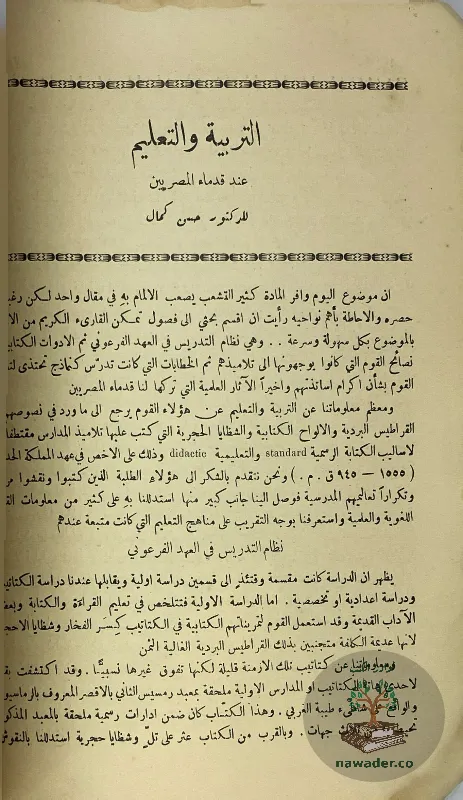 التربية والتعليم
عند قدماء المصريين
للدكتور حسن كمال
ان موضوع اليوم وافر المادة كثير التشعب يصعب الالمام به في مقال واحد لكن
حصره والاحاطة بأهم نواحيه رأيت ان اقسم بحثي الى فصول تمكن القارىء الكريم من
بالموضوع بكل سهولة وسرعة . . وهي نظام التدريس في العهد الفرعوني ثم الادوات
نصائح القوم التي كانوا يوجهونها الى تلاميذهم ثم الخطابات التي كانت تدرّس كنماذج تحتذى
القوم بشأن اكرام اساتذتهم واخيراً الآثار العلمية التي تركها لنا قدماء المصريين
ومعظم معلوماتنا عن التربية والتعليم عن هؤلاء القوم يرجع الى ما ورد في
القراطيس البردية والالواح الكتابية والشظايا الحجرية التي كتب عليها تلاميذ المدارس
لاساليب الكتابة الرسمية standard والتعليمية didactic وذلك على الاخص في عهد المملكة
( ١٥٥٥ — ٩٤٥ ق . م . ) ونحن نتقدم بالشكر الى هؤلاء الطلبة الذين كتبوا ونقشوا
وتكراراً تعاليمهم المدرسية فوصل الينا جانب كبير منها استدللنا به على كثير من معلومات
اللغوية والعلمية واستعرفنا بوجه التقريب على مناهج التعليم التي كانت متبعة عندهم
نظام التدريس في العهد الفرعوني
يظهر ان الدراسة كانت مقسمة وقتئذٍ الى قسمين دراسة اولية ويقابلها عندنا دراسة
ودراسة اعدادية او تخصصية . اما الدراسة الاولية فتتلخص في تعليم القراءة والكتابة
الآداب القديمة وقد استعمل القوم لتمريناتهم الكتابية في الكتاتيب كِسَر الفخار وشظايا
لانها عديمة الكلفة متجنبين بذلك القراطيس البردية الغالية الثمن
عن كتاتيب تلك الازمنة قليلة لكنها تفوق غيرها نسبيًّا . وقد اكتشفت
الكتاتيب او المدارس الاولية ملحقة بمعبد رمسيس الثاني بالاقصر المعروف
طيبة الغربي . وهذا الكتّاب كان ضمن ادارات رسمية ملحقة بالمعبد
جهات . وبالقرب من الكتاب عثر على تلّ وشظايا حجرية استدللنا
nawader.co